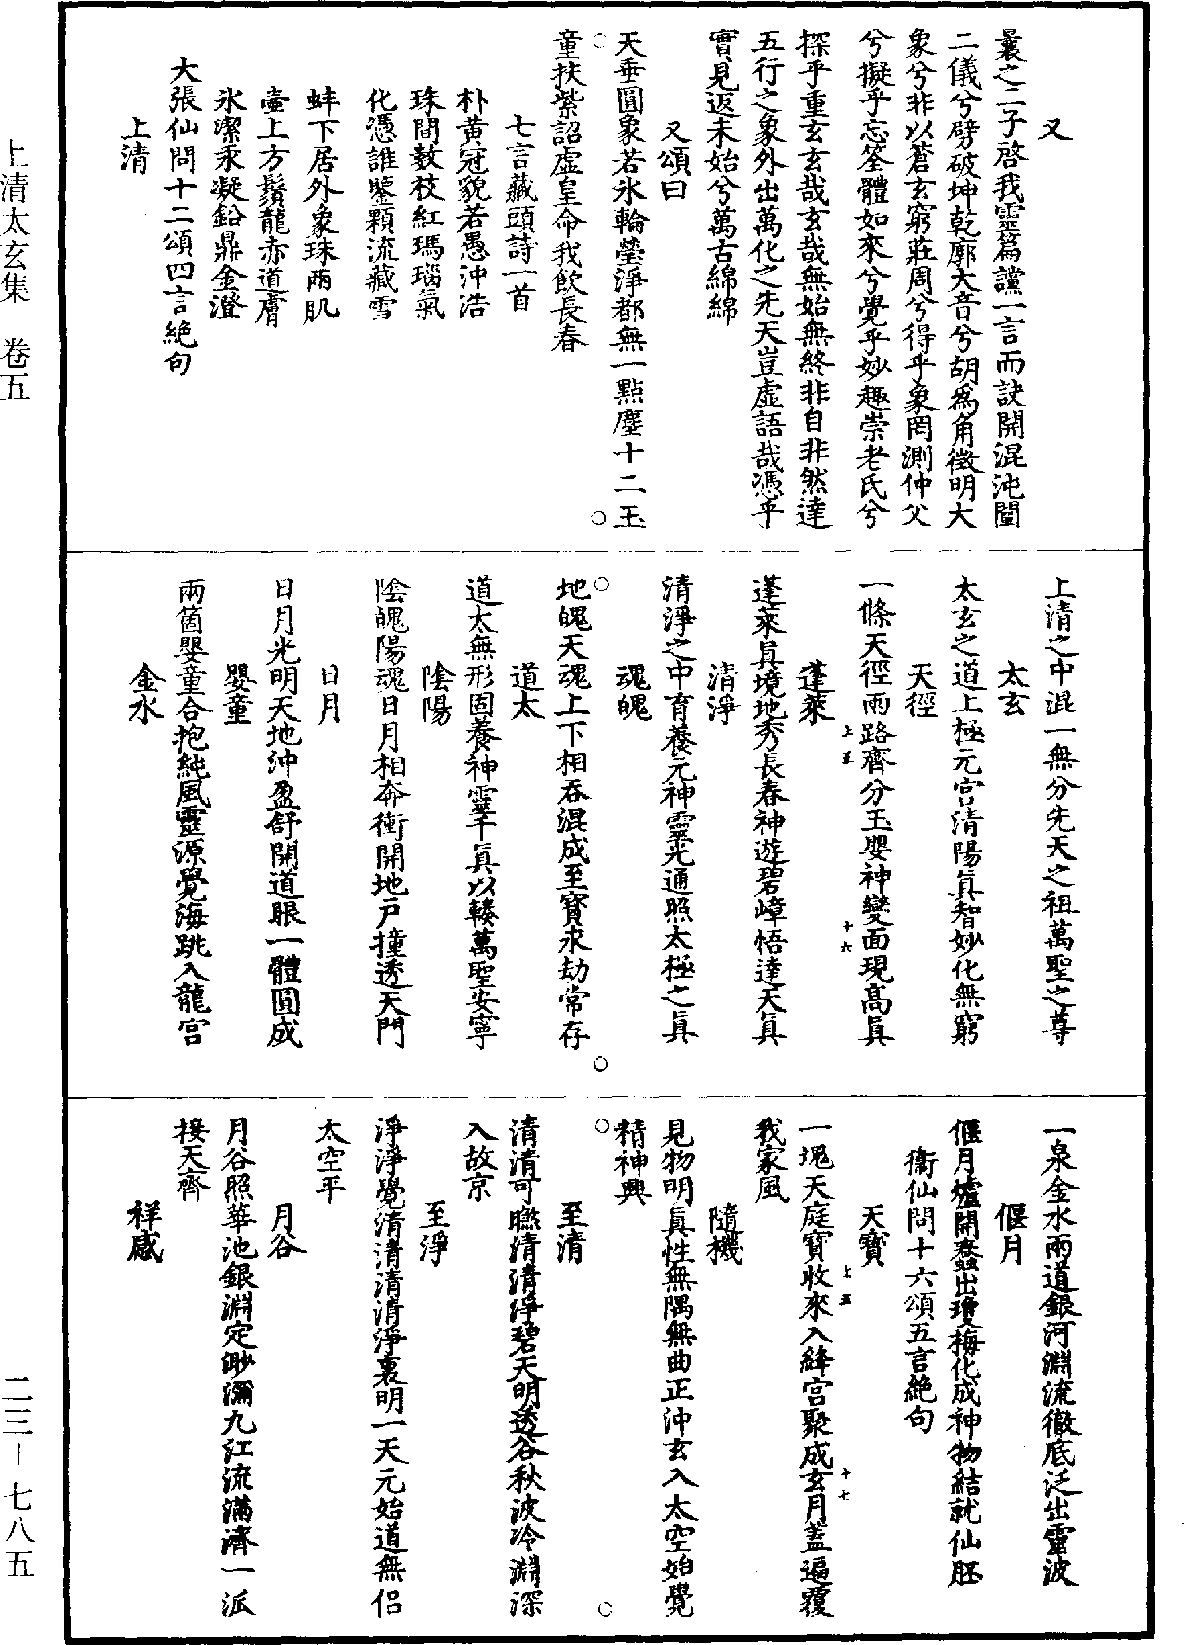 又
曩之二子啓我靈篇讜一言而訣開混沌闡
二儀兮劈破坤乾廓大音兮胡爲角徵明大
象兮非以蒼玄窮莊周兮得乎象罔測仲父
兮擬乎忘筌體如來兮覺乎妙趣崇老氏兮
探乎重玄玄哉玄哉無始無終非自非然達
五行之象外出萬化之先天豈虛語哉憑乎
實見返未始兮萬古綿綿
又頌曰
天垂圓象若氷輪瑩淨都無一點塵十二玉
童扶紫詔虛皇命我飲長春
七言藏頭詩一首
朴黃冠貌若愚沖浩
珠間數枝紅瑪瑙氣
化憑誰鑒顆流藏雪
蚌下居外象珠兩肌
壷上方鬚龍赤道膚
氷潔汞凝鉛鼎金澄
大張仙問十二頌四言絶句
上清
上清之中混一無分先天之祖萬聖之尊
太玄
太玄之道上極元宮清陽眞智妙化無窮
天徑
一條天徑兩路齊分玉嬰神變面現高眞
蓬萊
蓬萊眞境地秀長春神遊碧嶂悟達天眞
清淨
清淨之中育養元神靈光通照太極之眞
魂魄
地魄天魂上下相吞混成至寶永劫常存
道太
道太無形固養神靈千眞以輳萬聖安寧
陰陽
陰魄陽魂日月相奔衝開地戶撞透天門
日月
日月光明天地沖盈舒開道眼一體圓成
嬰童
兩箇嬰童合抱純風靈源覺海跳入龍宮
金水
一泉金水兩道銀河淵流徹底泛出靈波
偃月
偃月爐開蠢出瓊梅化成神物結就仙胚
衞仙問十六頌五言絶句
天寶
一塊天庭寶收來入絳宮聚成玄月蓋遍覆
我家風
隨機
見物明眞性無隅無曲正沖玄入太空始覺
精神興
至清
清清可瞧清清淨碧天明透谷秋波冷淵深
入故京
至淨
淨淨覺清清清清淨裏明一天元始道無侶
太空平
月谷
月谷照華池銀淵定渺瀰九江流滿濟一派
接天齊
祥感
上清太玄集 卷五
二三－七八五
上五
十六
上五
十七